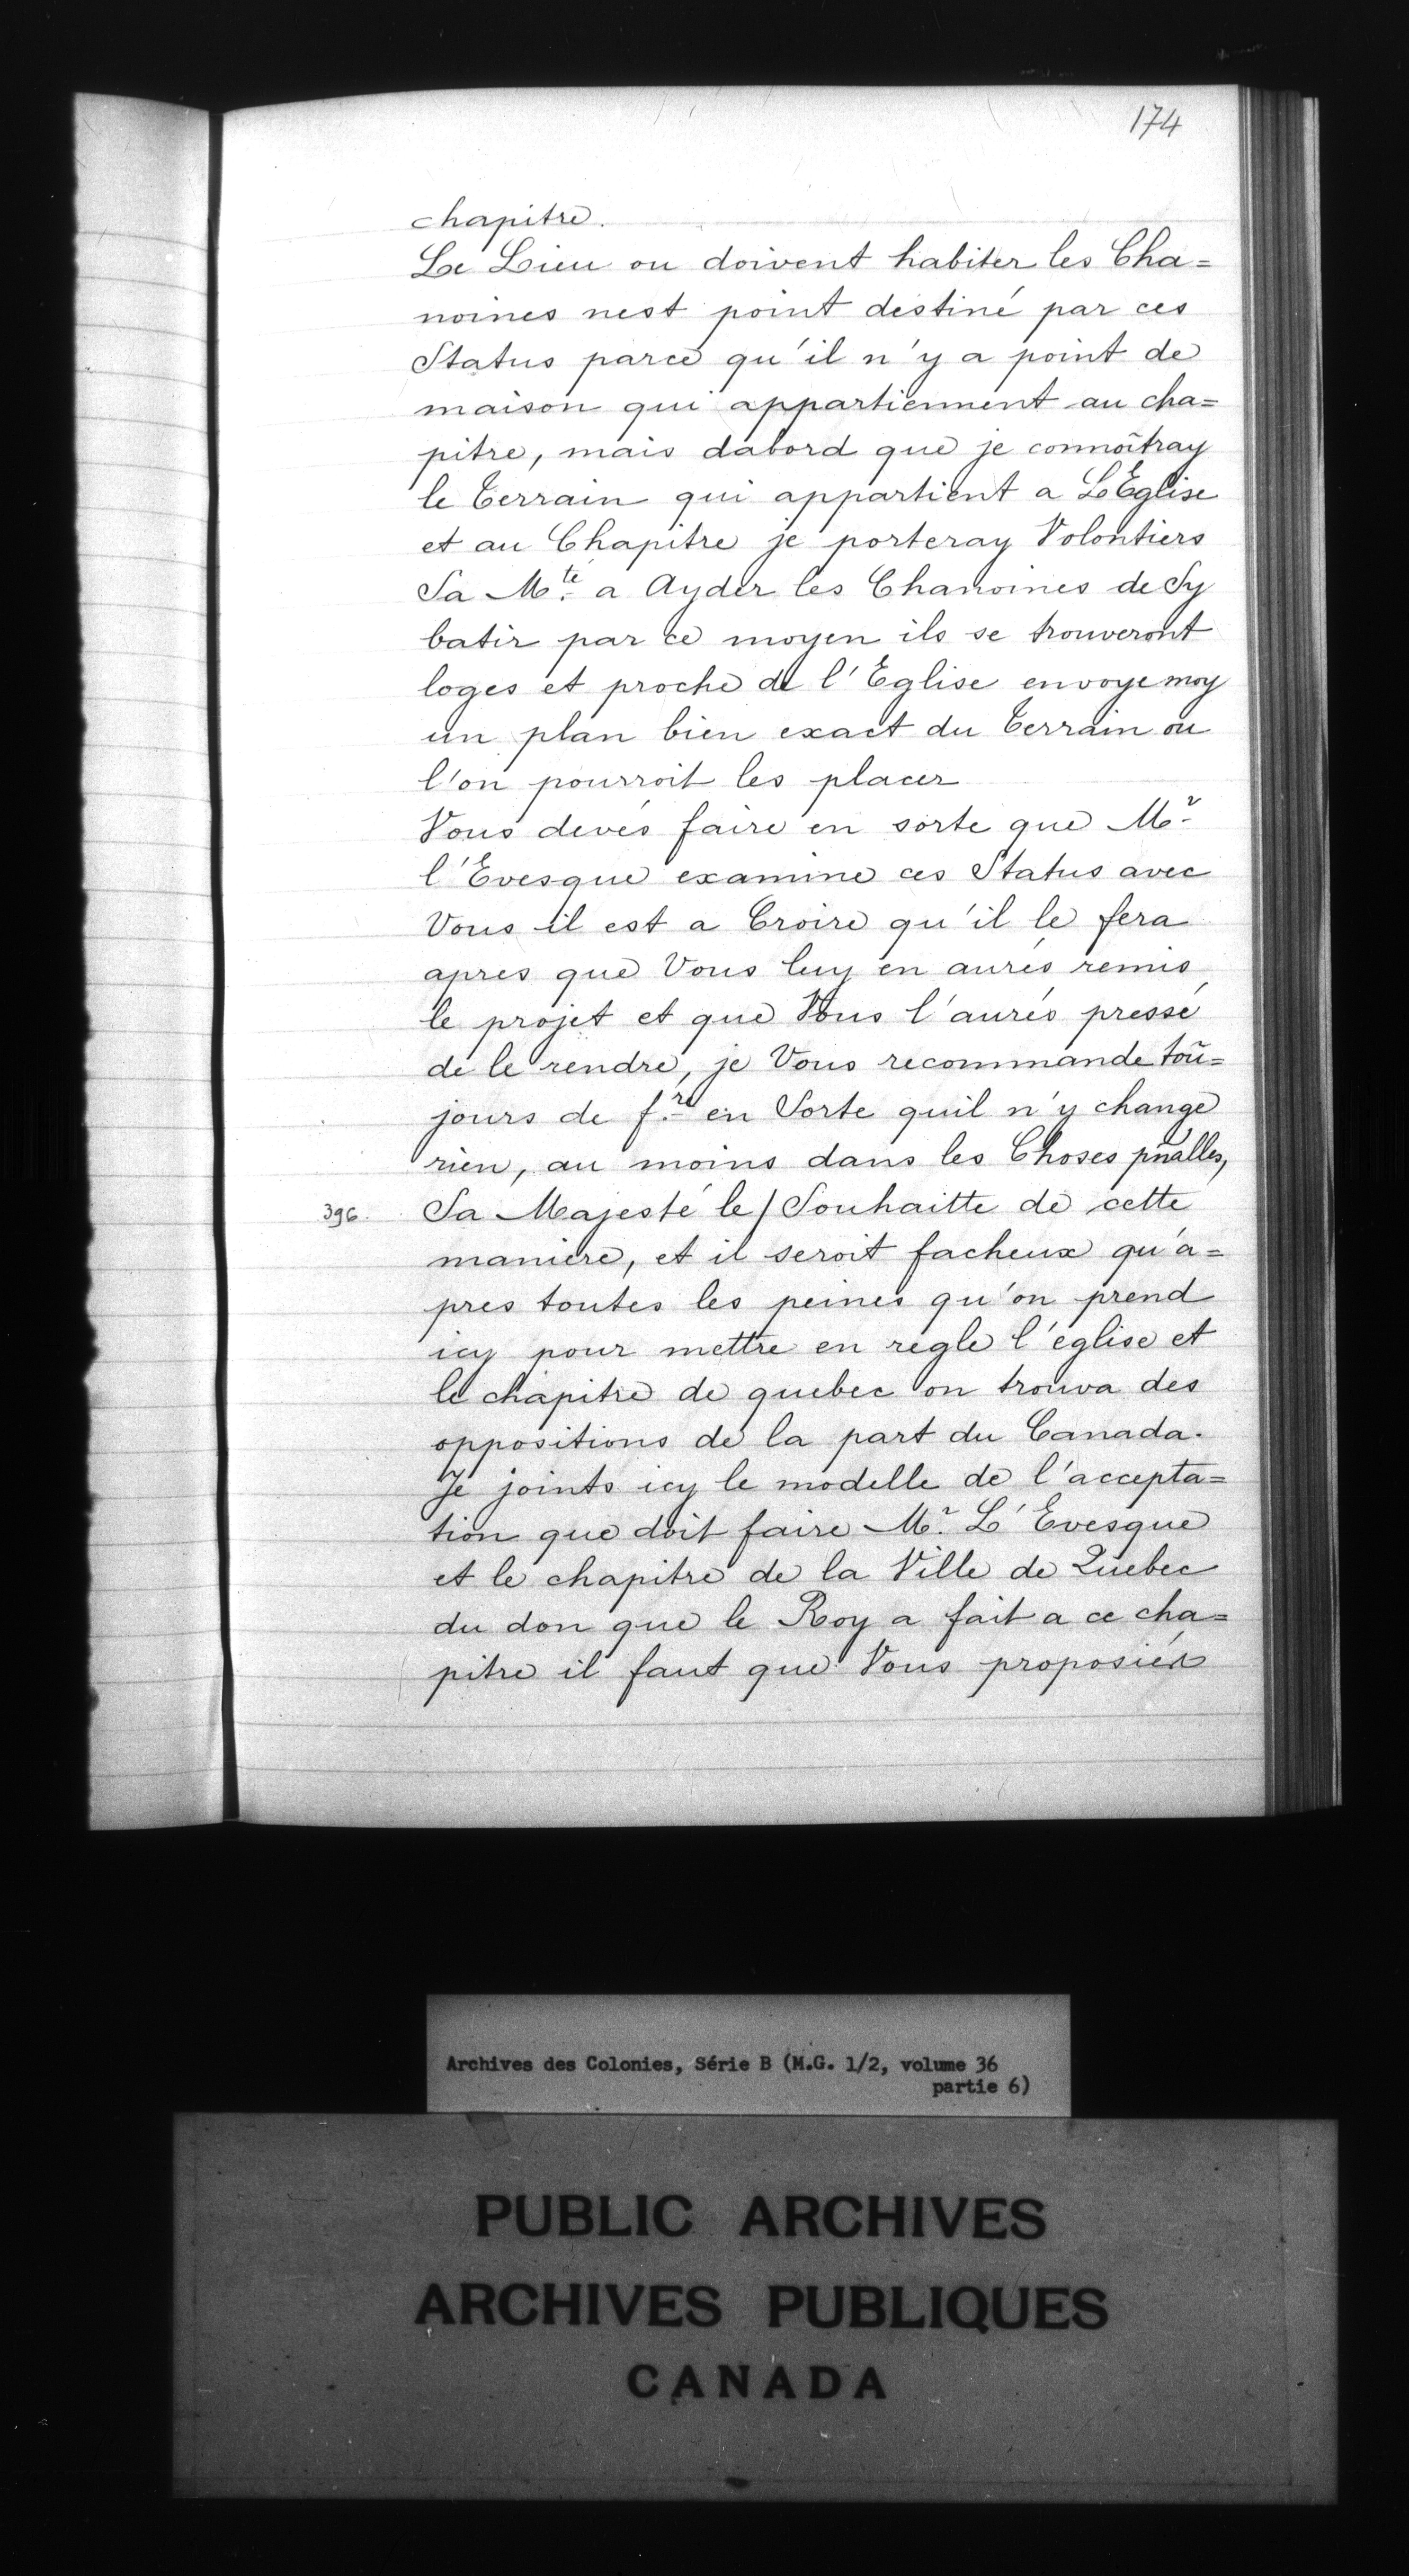 174
chapitre.
Le Lieu ou doivent habiter les Cha=
noines nest point destiné par ces
Status parce qu'il n'y a point de
maison qui appartiennent au cha=
pitre, mais dabord que je connoîtray
le terrain qui appartient a L'Eglise
et au Chapitre je porteray Volontiers
Sa Mté a Ayder les Chanoines de Sy
batir par ce moyen ils se trouveront
loges et proche de l'Eglise envoye moy
un plan bien exact du terrain ou
l'on pourroit les placer
Vous devés faire en sorte que Mr
l'Evesque examine ces Status avec
Vous il est a Croire qu'il le fera
apres que Vous luy en aurés remis
le projet et que Vous l'aurés pressé
de le rendre, je Vous recommande toũ=
jours de f.re en Sorte quil n'y change
rien, au moins dans les Choses pñalles,
396. Sa Majesté le / Souhaitte de cette
maniere, et il seroit facheux qu'a=
pres toutes les peines qu'on prend
icy pour mettre en regle l'église et
le chapitre de quebec on trouva des
oppositions de la part du Canada.
Je joints icy le modelle de l'accepta=
tion que doit faire Mr. L'Evesque
et le chapitre de la Ville de Quebec
du don que le Roy a fait a ce cha=
pitre il faut que Vous proposiés
Archives des Colonies, Série B (M.G. 1/2, volume 36
partie 6)
PUBLIC ARCHIVES
ARCHIVES PUBLIQUES
CANADA